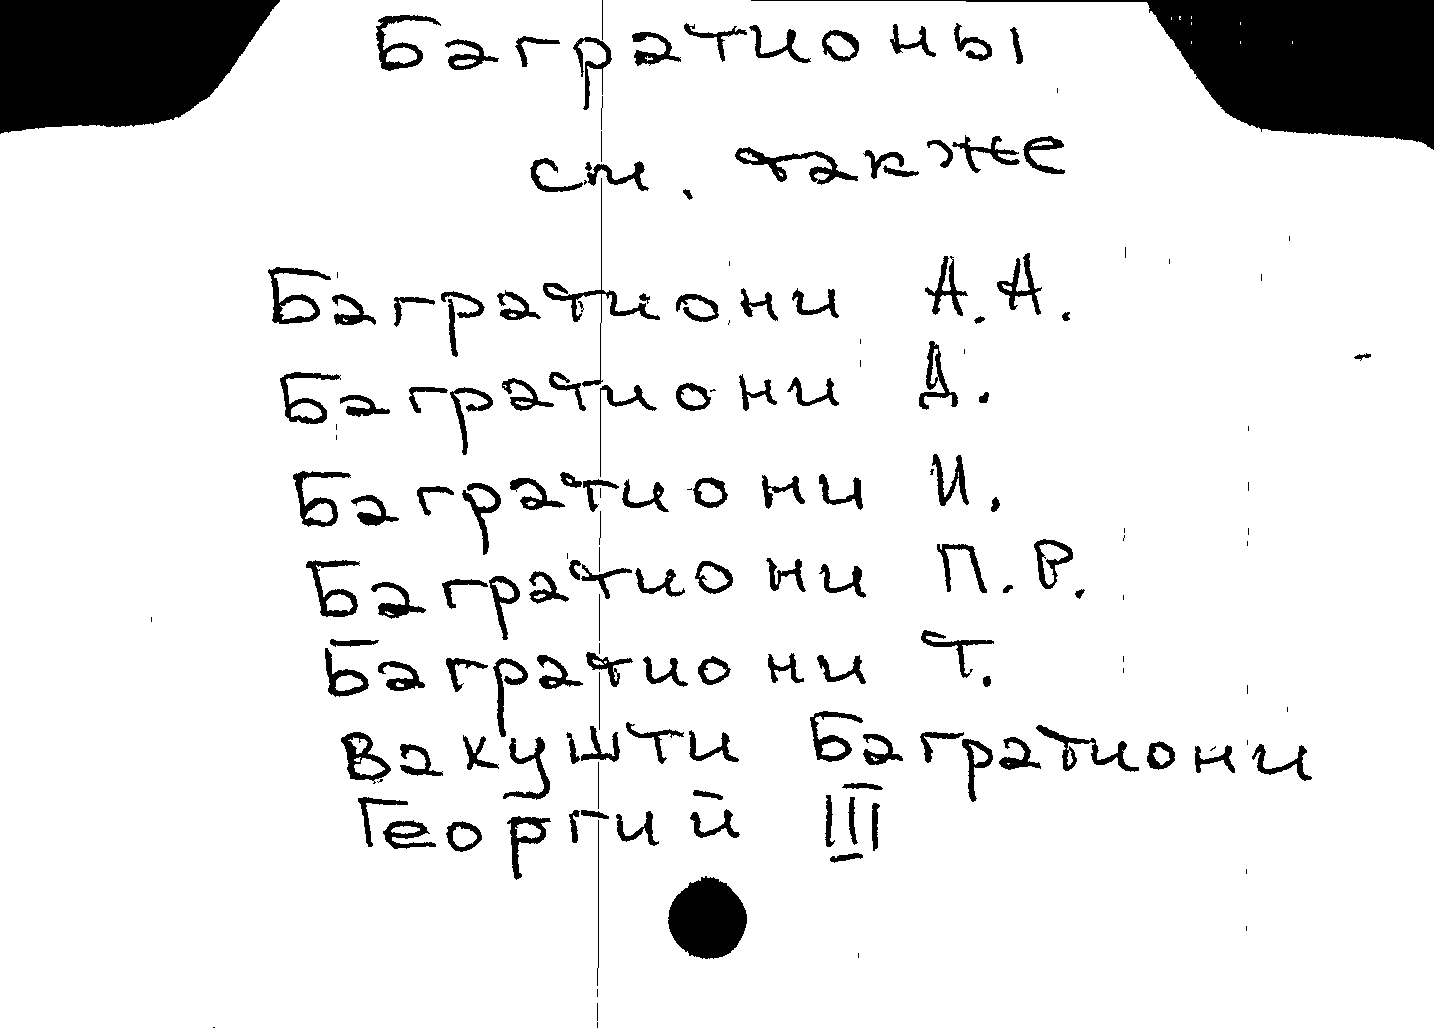 Багратионы
см. также
Багратиони А.А.
Багратиони Д.
Багратиони И.
Багратиони П.Р.
Багратиони Т.
Вакушти Багратиони
Георгий III